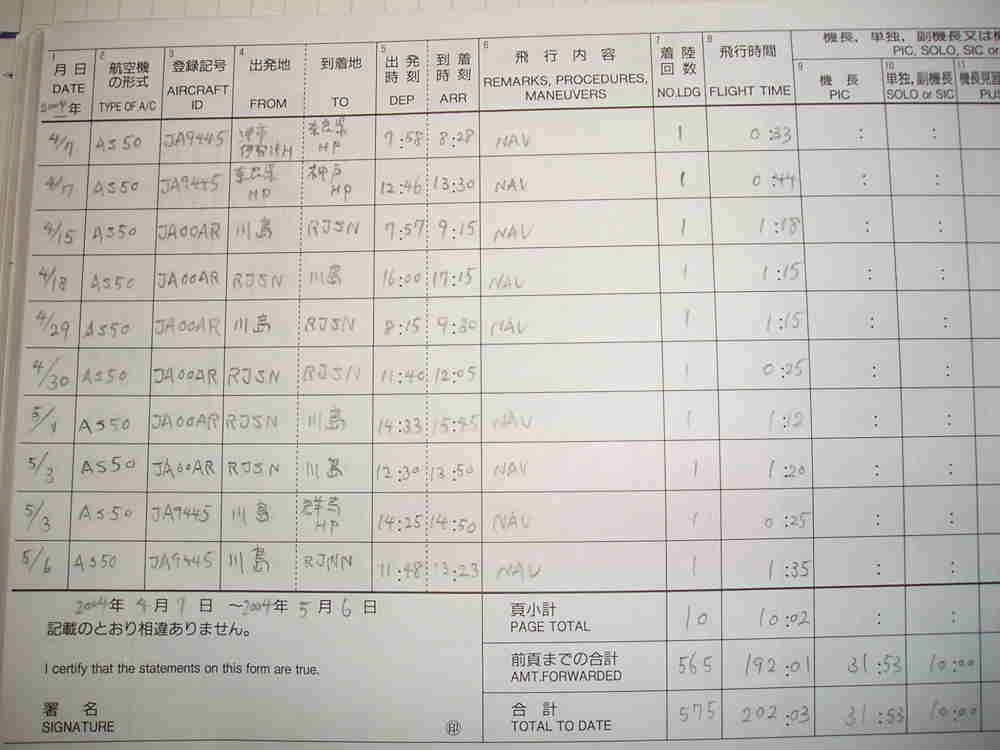 1 月 日 DATE 2004年
2 航空機の形式 TYPE OF A/C
3 登録記号 AIRCRAFT ID
4 出発地 FROM 到着地 TO
5 出発時刻 DEP 到着時刻 ARR
6 飛行内容 REMARKS, PROCEDURES, MANEUVERS
7 着陸回数 NO.LDG
8 飛行時間 FLIGHT TIME
機長, 単独, 副機長又は
PIC, SOLO, SIC or
9 機長 PIC
10 単独, 副機長 SOLO or SIC
11 機長見
4/7 AS50 JA9445 津市 伊勢湾H 奈良県 HP 7:58 8:28 NAV 1 0:33 : :
4/7 AS50 JA9445 奈良県 HP 神戸 HP 12:46 13:30 NAV 1 0:44 : :
4/15 AS50 JA00AR 川島 RJSN 7:57 9:15 NAV 1 1:18 : :
4/18 AS50 JA00AR RJSN 川島 16:00 17:15 NAV 1 1:15 : :
4/29 AS50 JA00AR 川島 RJSN 8:15 9:30 NAV 1 1:15 : :
4/30 AS50 JA00AR RJSN RJSN 11:40 12:05 1 0:25 : :
5/1 AS50 JA00AR RJSN 川島 14:33 15:45 NAV 1 1:12 : :
5/3 AS50 JA00AR RJSN 川島 12:30 13:50 NAV 1 1:20 : :
5/3 AS50 JA9445 川島 群馬 HP 14:25 14:50 NAV 1 0:25 : :
5/6 AS50 JA9445 川島 RJNN 11:48 13:23 NAV 1 1:35 : :
2004年 4月 7日 ～2004年 5月 6日
記載のとおり相違ありません。
I certify that the statements on this form are true.
署 名
SIGNATURE ㊞
頁小計 PAGE TOTAL 10 10:02 : :
前頁までの合計 AMT.FORWARDED 565 192:01 31:53 10:00
合 計 TOTAL TO DATE 575 202:03 31:53 10:00